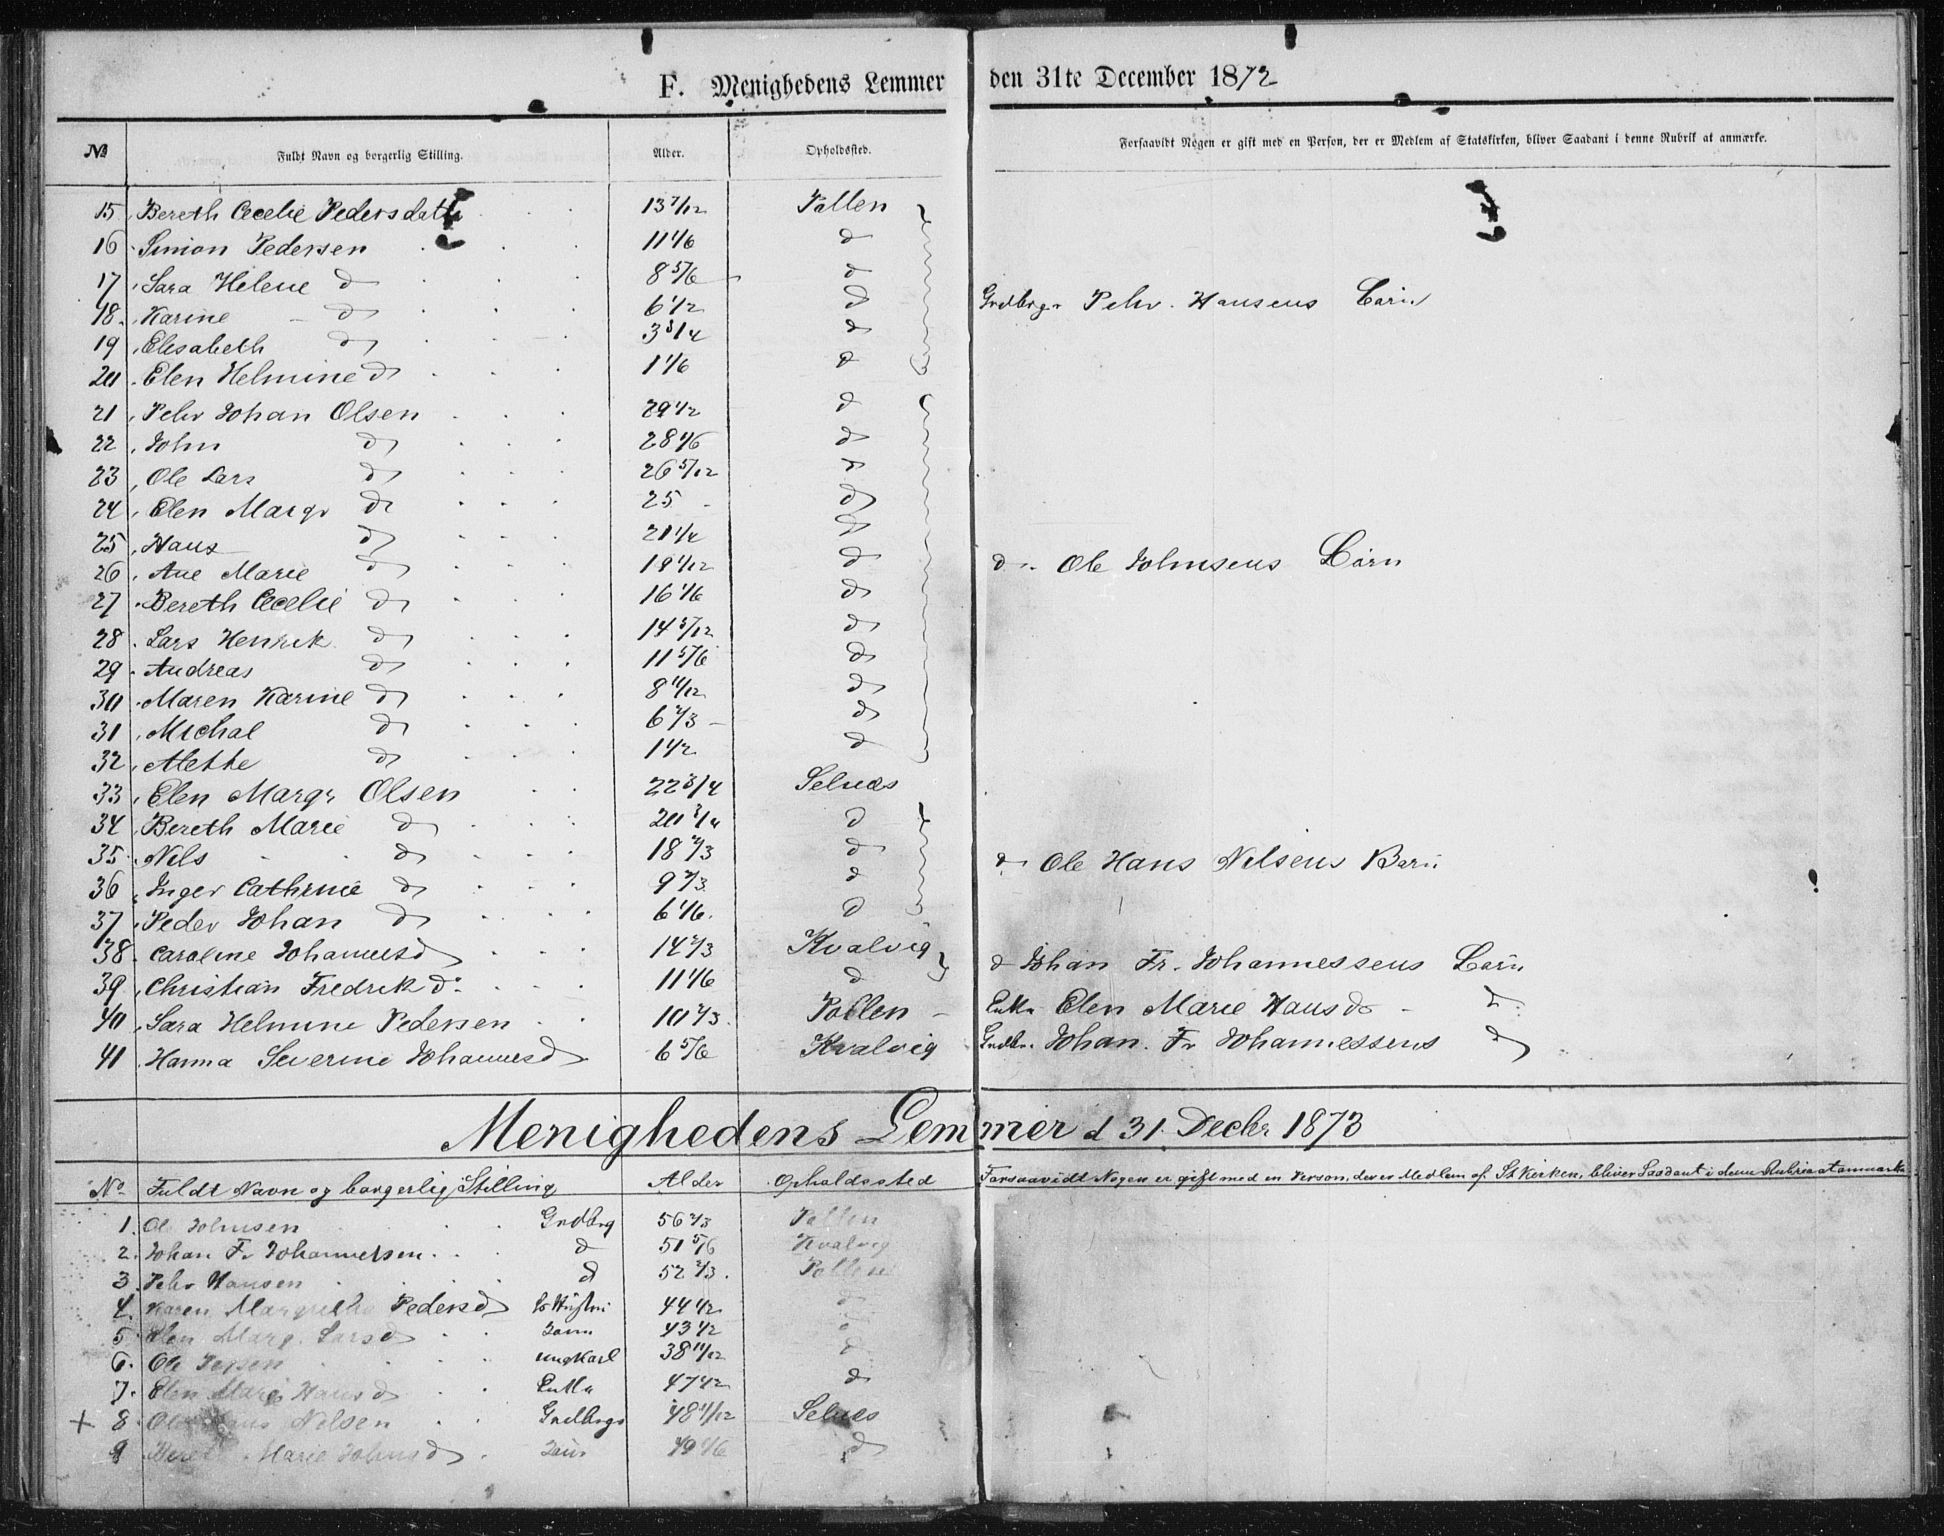 F. Menighedens Lemmer den 31te December 1872
№ Fuldt Navn og borgerlig Stilling. Alder. Opholdssted. Forsaavidt Nogen er gift med en Person, der er Medlem af Statskirken, bliver Saadant i denne Rubrik at anmærke.
15 Bereth Cecelie Pedersdatt 13 7/12 Pollen
16 Simon Pedersen 11 1/6 d
17 Sara Helene d 8 5/6 d
18 Karine d 6 1/2 d Grdbrgr Pehr Hansens Börn
19 Elisabeth d 3 3/4 d
20 Elen Helmine d 1 1/6 d
21 Pehr Johan Olsen 29 1/2 d
22 John d 28 1/6 d
23 Ole Lars d 26 5/12 d
24 Elen Margr d 25 d
25 Hans d 21 1/4 d
26 Ane Marie d 18 1/12 d d Ole Johnsens Börn
27 Bereth Cecelie d 16 1/6 d
28 Lars Henrik d 14 5/12 d
29 Andreas d 11 5/6 d
30 Maren Karine d 8 11/12 d
31 Michal d 6 2/3 d
32 Mette d 1 1/2 d
33 Elen Margr Olsen 22 3/4 Selnæs
34 Bereth Marie d 20 3/4 d
35 Nils d 18 2/3 d d Ole Hans Nilsens Börn
36 Inger Cathrine d 9 2/3 d
37 Peder Johan d 6 1/6 d
38 Caroline Johannesd 14 2/3 Kvalvig d Johan Fr. Johannessens Börn
39 Christian Fredrik d 11 1/6 d
40 Sara Helmine Pedersen 10 2/3 Pollen Enke Elen Marie Hansd d
41 Hanna Severine Johannesd 6 5/6 Kvalvig Grdbr. Johan Fr Johannessens d
Menighedens Lemmer d 31 Decbr 1873
No Fuldt Navn og borgerlig Stilling Alder Opholdssted Forsaavidt Nogen er gift med en Person, der er Medlem af St Kirken, bliver Saadant i denne Rubrik at anmærke
1. Ole Johnsen Grdbrg 56 2/3 Pollen
2. Johan Fr Johannessen d 51 5/6 Kvalvig
3. Pehr Hansen d 52 2/3 Pollen
4. Karen Margretha Pedersd Hustru 44 1/2 d
5 Elen Marg. Larsd 43 1/2 d
6. Ole ungkarl 38 11/12 d
7. Elen Marie Hansd Enke 47 1/2 d
+ 8 Ole Hans Nilsen Grdbrgr 48 1/12 Selnes
9 Bereth Marie Johnsd 49 1/6 d